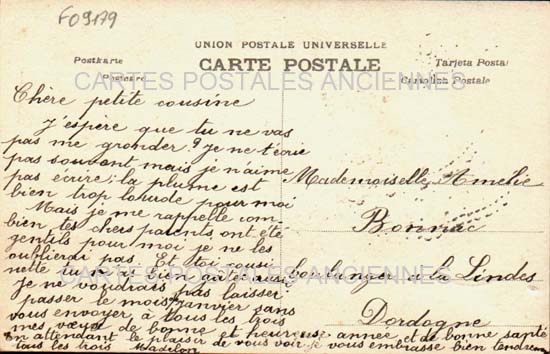 F09179
UNION POSTALE UNIVERSELLE
Postkarte
CARTE POSTALE
Tarjeta Postal
Postcard
Cartolina Postale
CARTES POSTALES ANCIENNES
Chère petite cousine
J'espère que tu ne vas
pas me gronder? Je ne t'écris
pas souvent mais je n'aime
pas écrire; la plume est
bien trop lourde pour moi
Mais je me rappelle com-
bien tes chers parents ont été
gentils pour moi je ne les
oublierai pas. Et toi cousi
nette
je ne voudrais pas laisser
passer le mois janvier sans
vous envoyer à tous les trois
mes vœux de bonne et heureuse année et de bonne santé
En attendant le plaisir de vous voir je vous embrasse bien tendrem
tous les trois Madelon
Mademoiselle Amélie
Bonnac
boulanger à la Lindes
Dordogne
CARTES POSTALES ANCIENNES